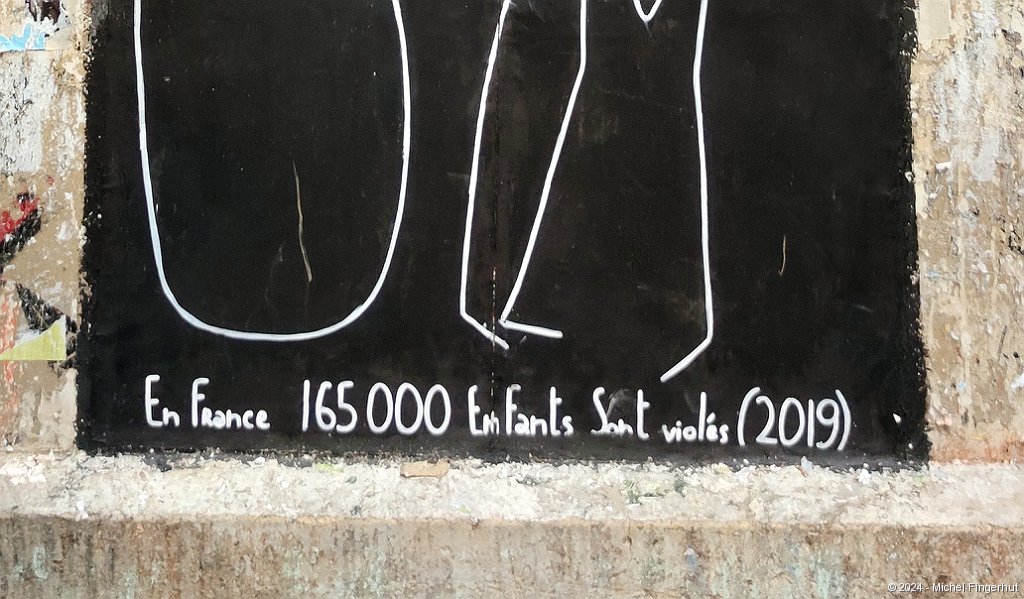 En France 165000 Enfants Sont violés (2019)
©2024 - Michel Fingerhut